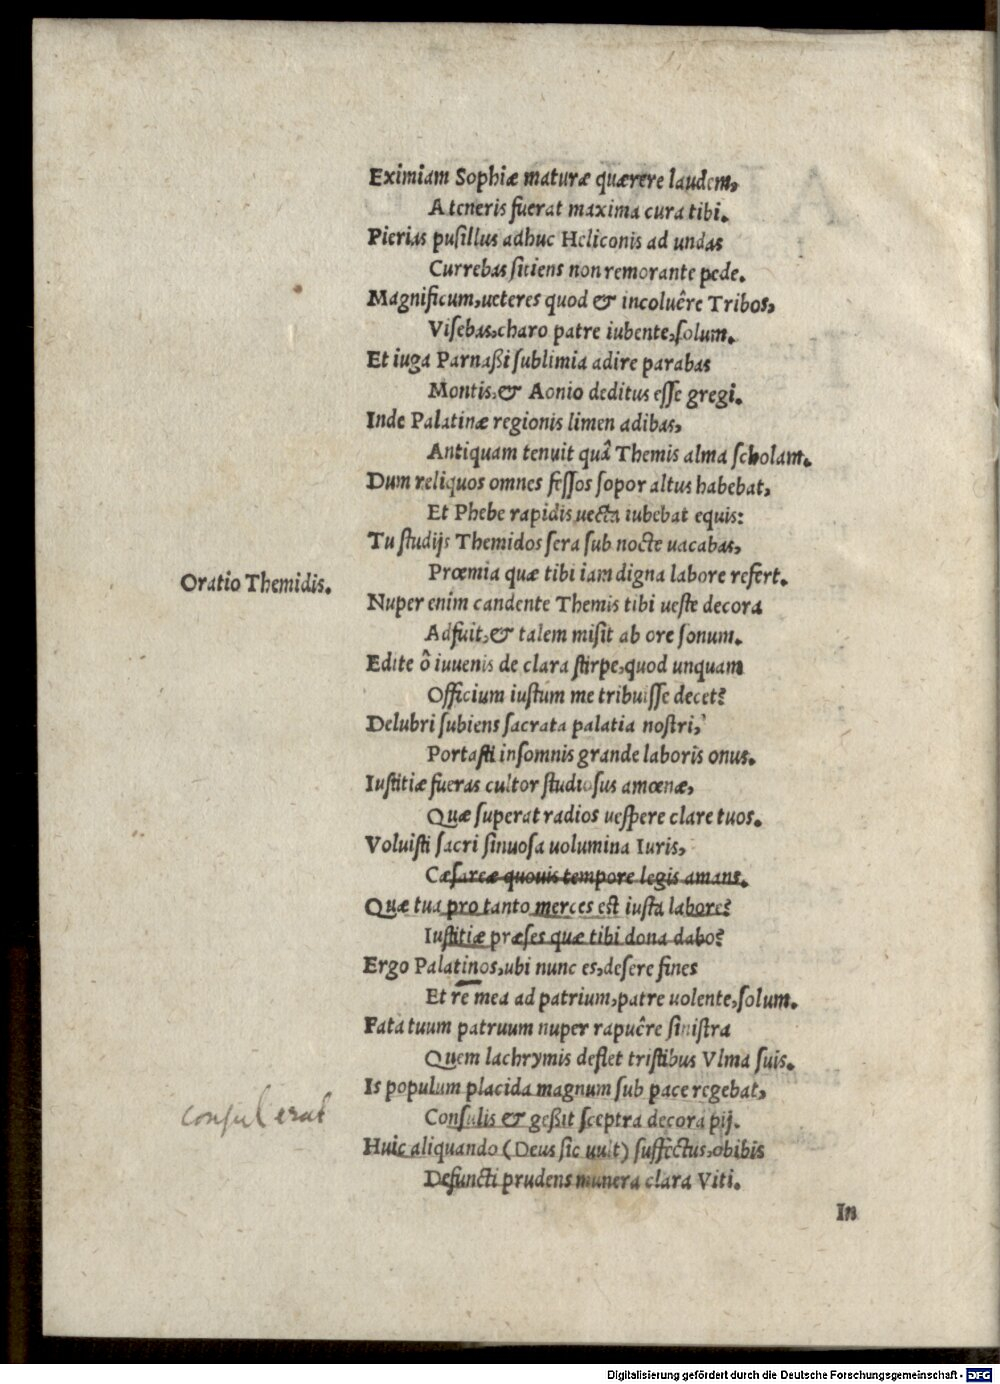 Eximiam Sophiæ maturæ quærere laudem,
A teneris fuerat maxima cura tibi.
Pierias pusillus adhuc Heliconis ad undas
Currebas sitiens non remorante pede.
Magnificum, ueteres quod & incoluêre Tribos,
Visebas, charo patre iubente, solum.
Et iuga Parnaßi sublimia adire parabas
Montis, & Aonio deditus esse gregi.
Inde Palatinæ regionis limen adibas,
Antiquam tenuit quâ Themis alma scholam.
Dum reliquos omnes fessos sopor altus habebat,
Et Phebe rapidis uecta iubebat equis:
Tu studijs Themidos sera sub nocte uacabas,
Prœmia quæ tibi iam digna labore refert.
Oratio Themidis.
Nuper enim candente Themis tibi ueste decora
Adfuit, & talem misit ab ore sonum.
Edite ô iuuenis de clara stirpe, quod unquam
Officium iustum me tribuisse decet?
Delubri subiens sacrata palatia nostri,
Portasti insomnis grande laboris onus.
Iustitiæ fueras cultor studiosus amœnæ,
Quæ superat radios uespere clare tuos.
Voluisti sacri sinuosa uolumina Iuris,
Cæsareæ quouis tempore legis amans.
Quæ tua pro tanto merces est iusta labore?
Iustitiæ præses quæ tibi dona dabo?
Ergo Palatinos, ubi nunc es, desere fines
Et re mea ad patrium, patre uolente, solum.
Fata tuum patruum nuper rapuêre sinistra
Quem lachrymis deflet tristibus Vlma suis.
Is populum placida magnum sub pace regebat,
consul erat
Consulis & geßit sceptra decora pij.
Huic aliquando (Deus sic uult) suffectus, obibis
Defuncti prudens munera clara Viti.
In
Digitalisierung gefördert durch die Deutsche Forschungsgemeinschaft - DFG